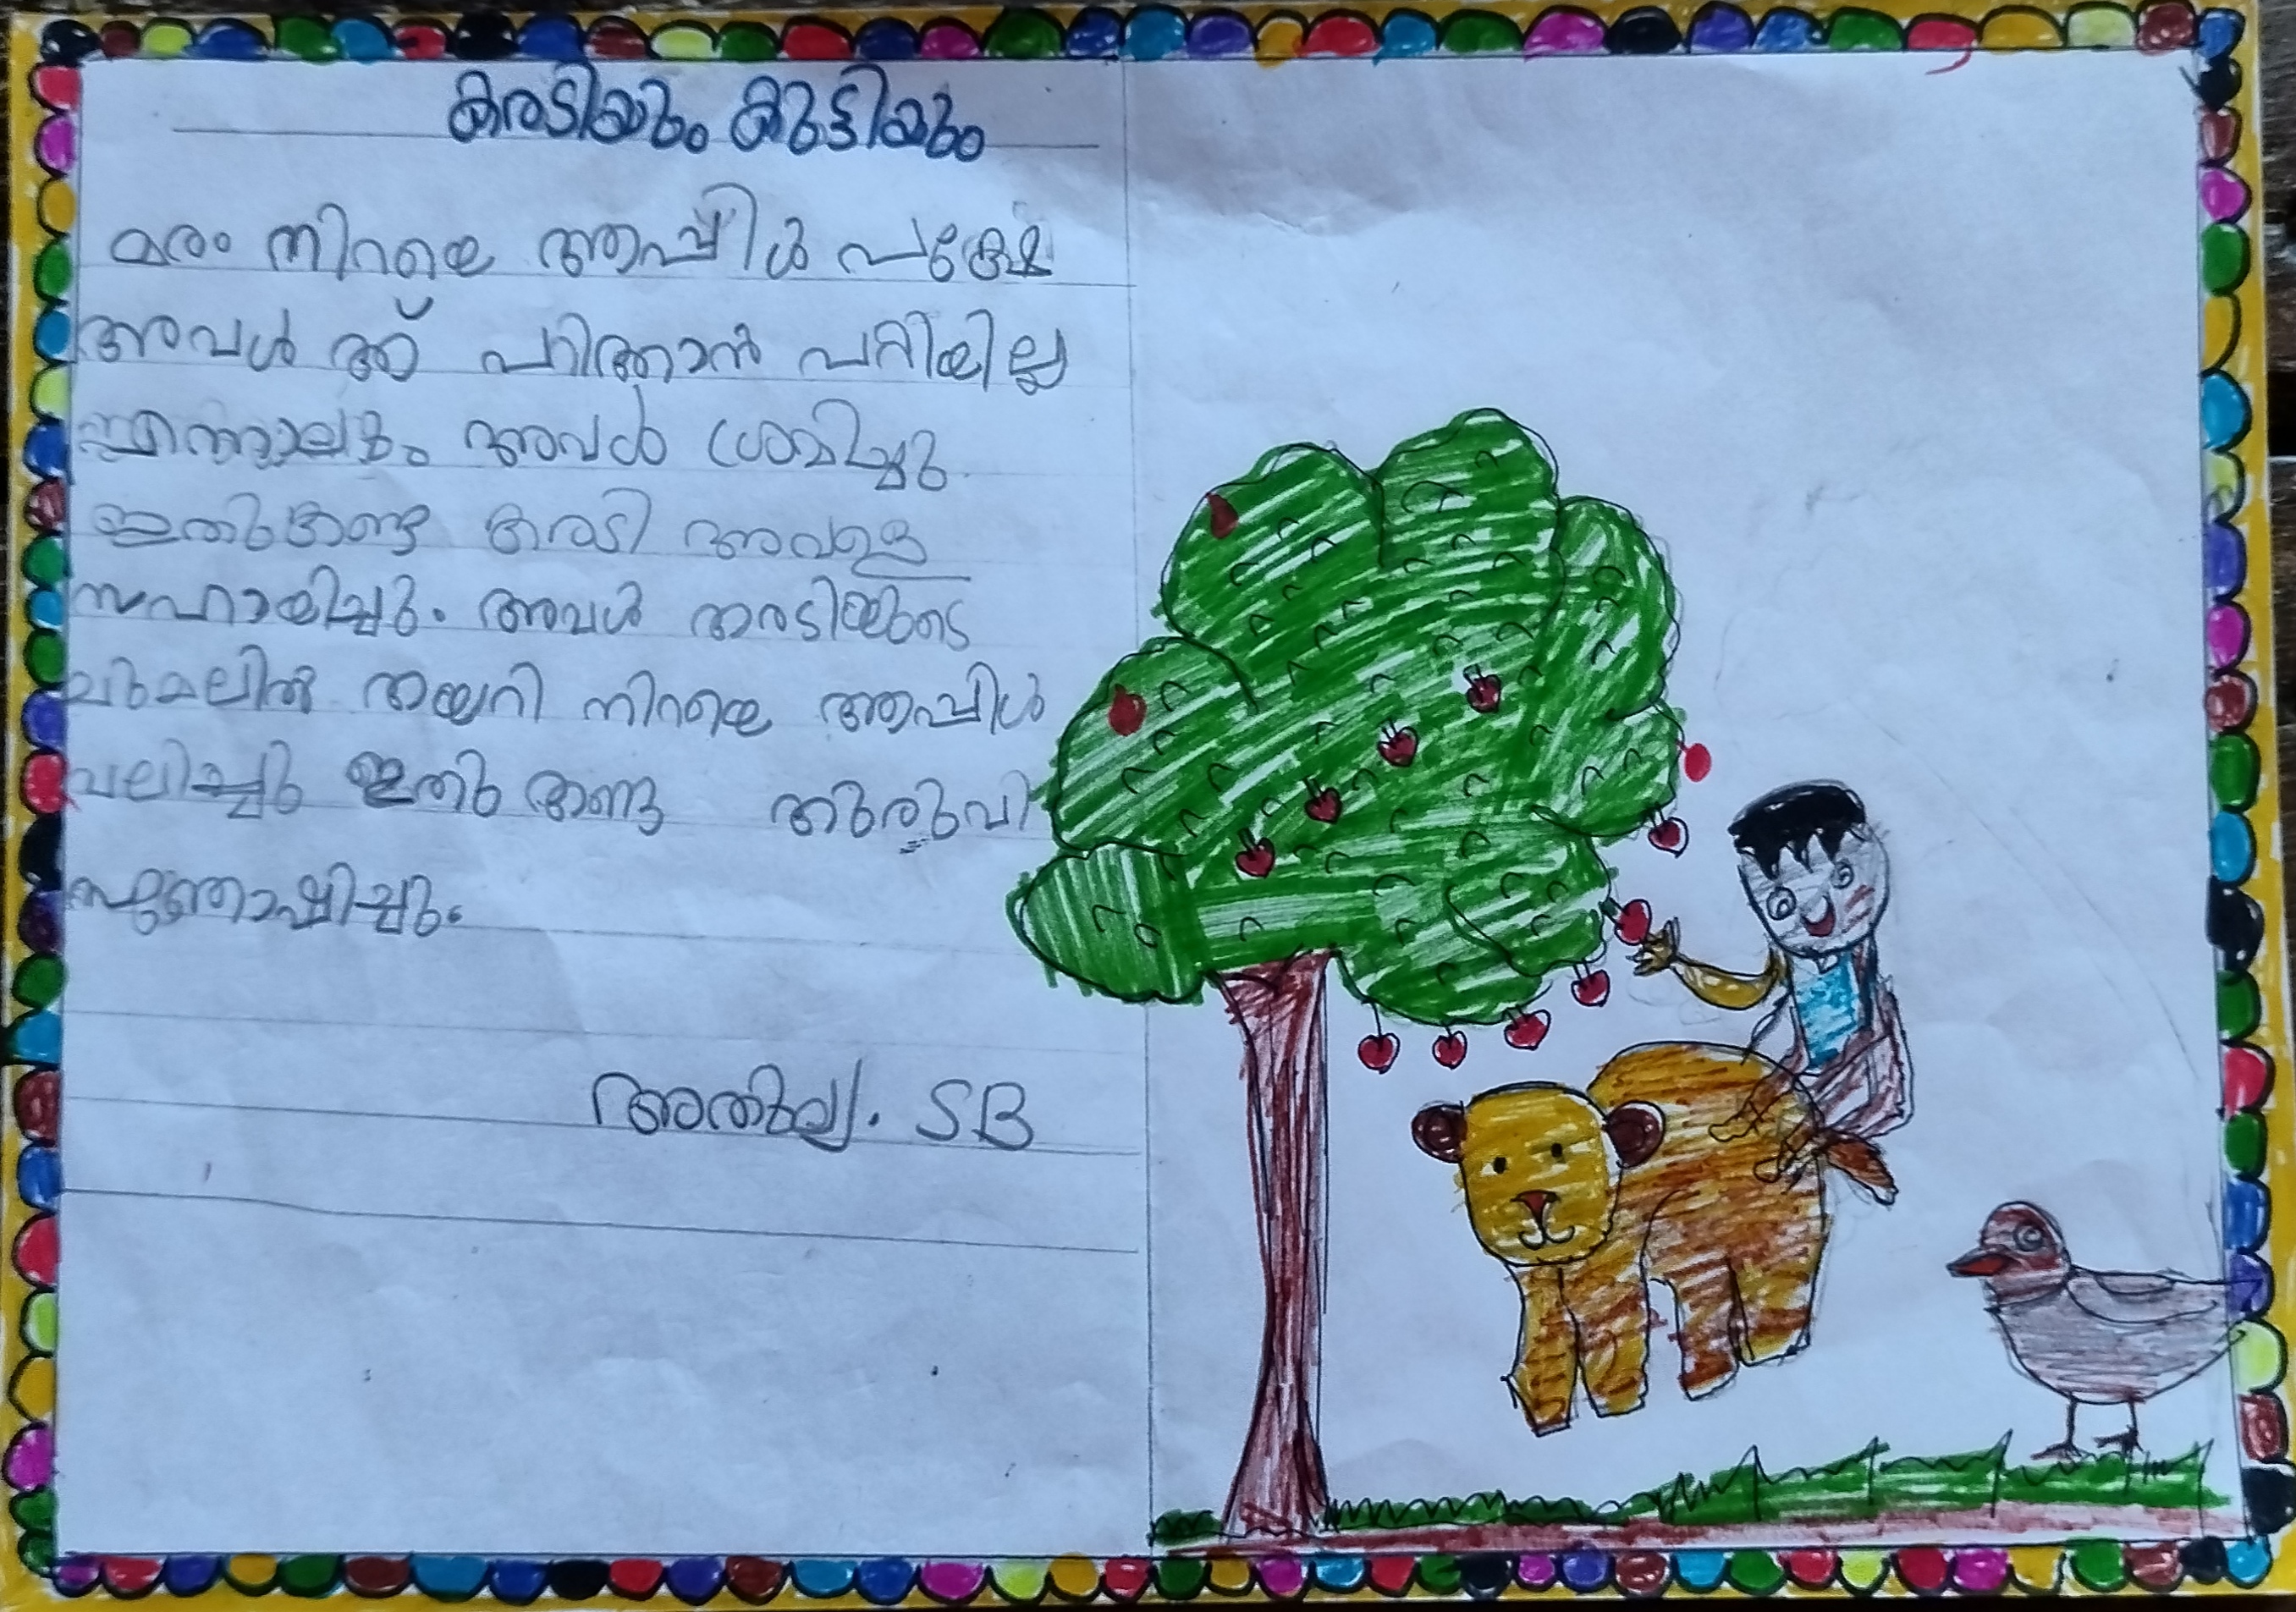 കരടിയും കുട്ടിയും
മരം നിറയെ ആപ്പിൾ പക്ഷേ
അവൾ ക്ക് പറിക്കാൻ പറ്റിയില്ല
എന്നാലും അവൾ ശ്രമിച്ചു
ഇതുകണ്ട കരടി അവളെ
സഹായിച്ചു. അവൾ കരടിയുടെ
ചുമലിൽ കയറി നിറയെ ആപ്പിൾ
വലിച്ചു ഇതു കണ്ട കുരുവി
സന്തോഷിച്ചു.
അതുല്യ. SB